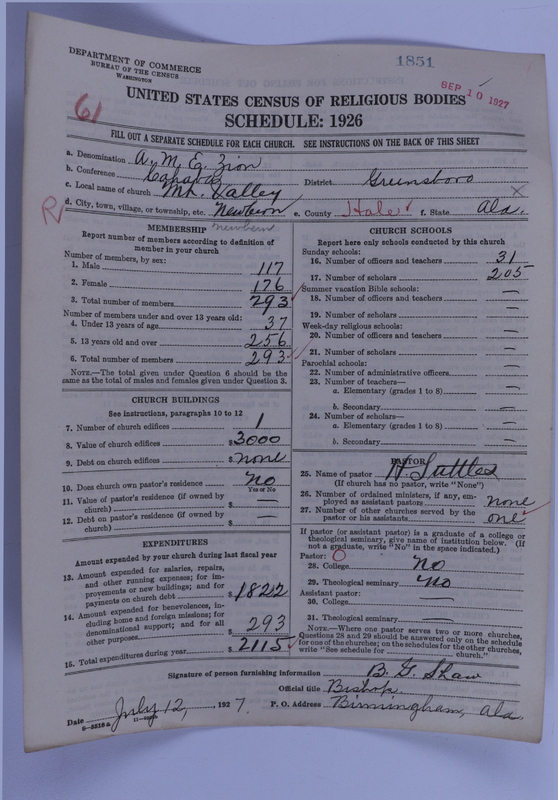 1851
DEPARTMENT OF COMMERCE
BUREAU OF THE CENSUS
WASHINGTON
SEP 10 1927
61
UNITED STATES CENSUS OF RELIGIOUS BODIES
SCHEDULE: 1926
FILL OUT A SEPARATE SCHEDULE FOR EACH CHURCH. SEE INSTRUCTIONS ON THE BACK OF THIS SHEET
a. Denomination A. M. E. Zion
b. Conference Cahaba District Greensboro
c. Local name of church Mt. Valley
d. City, town, village, or township, etc. Newbern e. County Hale f. State Ala.
Newbern
MEMBERSHIP
Report number of members according to definition of
member in your church
Number of members, by sex:
1. Male 117
2. Female 176
3. Total number of members 293
Number of members under and over 13 years old:
4. Under 13 years of age 37
5. 13 years old and over 256
6. Total number of members 293
NOTE.—The total given under Question 6 should be the
same as the total of males and females given under Question 3.
CHURCH BUILDINGS
See instructions, paragraphs 10 to 12
7. Number of church edifices 1
8. Value of church edifices $3000
9. Debt on church edifices $ none
10. Does church own pastor's residence? no
Yes or No
11. Value of pastor's residence (if owned by
church) $ —
12. Debt on pastor's residence (if owned by
church) $ —
EXPENDITURES
Amount expended by your church during last fiscal year
13. Amount expended for salaries, repairs,
and other running expenses; for im-
provements or new buildings; and for
payments on church debt $1822
14. Amount expended for benevolences, in-
cluding home and foreign missions; for
denominational support; and for all
other purposes $ 293
15. Total expenditures during year $ 2115
CHURCH SCHOOLS
Report here only schools conducted by this church
Sunday schools:
16. Number of officers and teachers 31
17. Number of scholars 205
Summer vacation Bible schools:
18. Number of officers and teachers —
19. Number of scholars —
Week-day religious schools:
20. Number of officers and teachers —
21. Number of scholars —
Parochial schools:
22. Number of administrative officers —
23. Number of teachers—
a. Elementary (grades 1 to 8) —
b. Secondary —
24. Number of scholars—
a. Elementary (grades 1 to 8) —
b. Secondary —
PASTOR
25. Name of pastor H Suttles
(If church has no pastor, write "None")
26. Number of ordained ministers, if any, em-
ployed as assistant pastors none
27. Number of other churches served by the
pastor or his assistants one
If pastor (or assistant pastor) is a graduate of a college or
theological seminary, give name of institution below. (If
not a graduate, write "No" in the space indicated.)
Pastor: 0
28. College no
29. Theological seminary no
Assistant pastor:
30. College —
31. Theological seminary —
NOTE.—Where one pastor serves two or more churches,
Questions 28 and 29 should be answered only on the schedule
for one of the churches; on the schedules for the other churches,
write "See schedule for church."
Signature of person furnishing information B. G. Shaw
Official title Bishop
Date July 12, 1927. P. O. Address Birmingham, Ala.